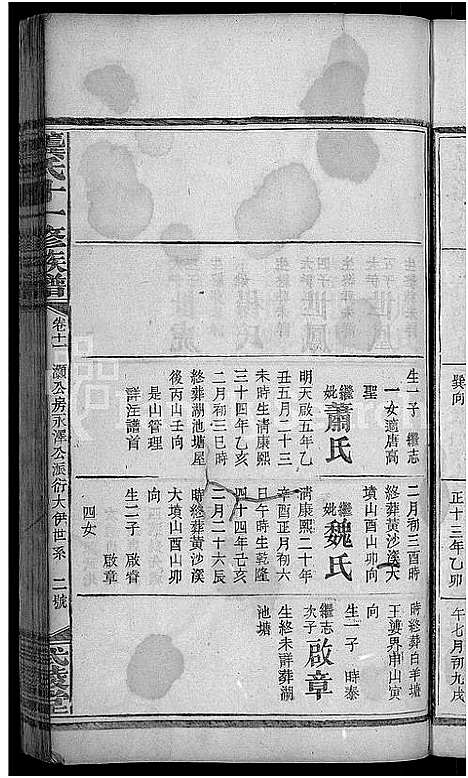 氏十一修族譜
卷十一
灝公房永澤公派衍大伊世系
二號
生一子 繼志
一女適唐高
聖
繼妣蕭氏
明天啟五年乙
丑五月二十三
未時生清康熙
三十四年乙亥
二月初三巳時
終葬湖池塘屋
後丙山壬向
是山管理
詳注譜首
二月初三酉時
終葬黃沙溪大
墳山酉山卯向
繼妣魏氏
清康熙二十年
辛酉正月初六
日午時生乾隆
四十四年己亥
二月二十六辰
時終葬黃沙溪
大墳山酉山卯
向
生二子 啟睿
啟章
四女
時終葬白羊塘
王婁界甲山寅
向
生一子 時泰
繼志次子啟章
生終未詳葬湖
池塘
巽向
正十三年乙卯
午七月初九戌